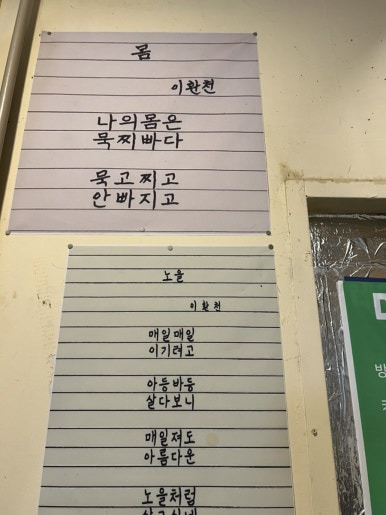 몸
이환천
나의몸은
묵찌빠다
묵고찌고
안빠지고
노을
이환천
매일매일
이기려고
아등바등
살다보니
매일져도
아름다운
노을처럼